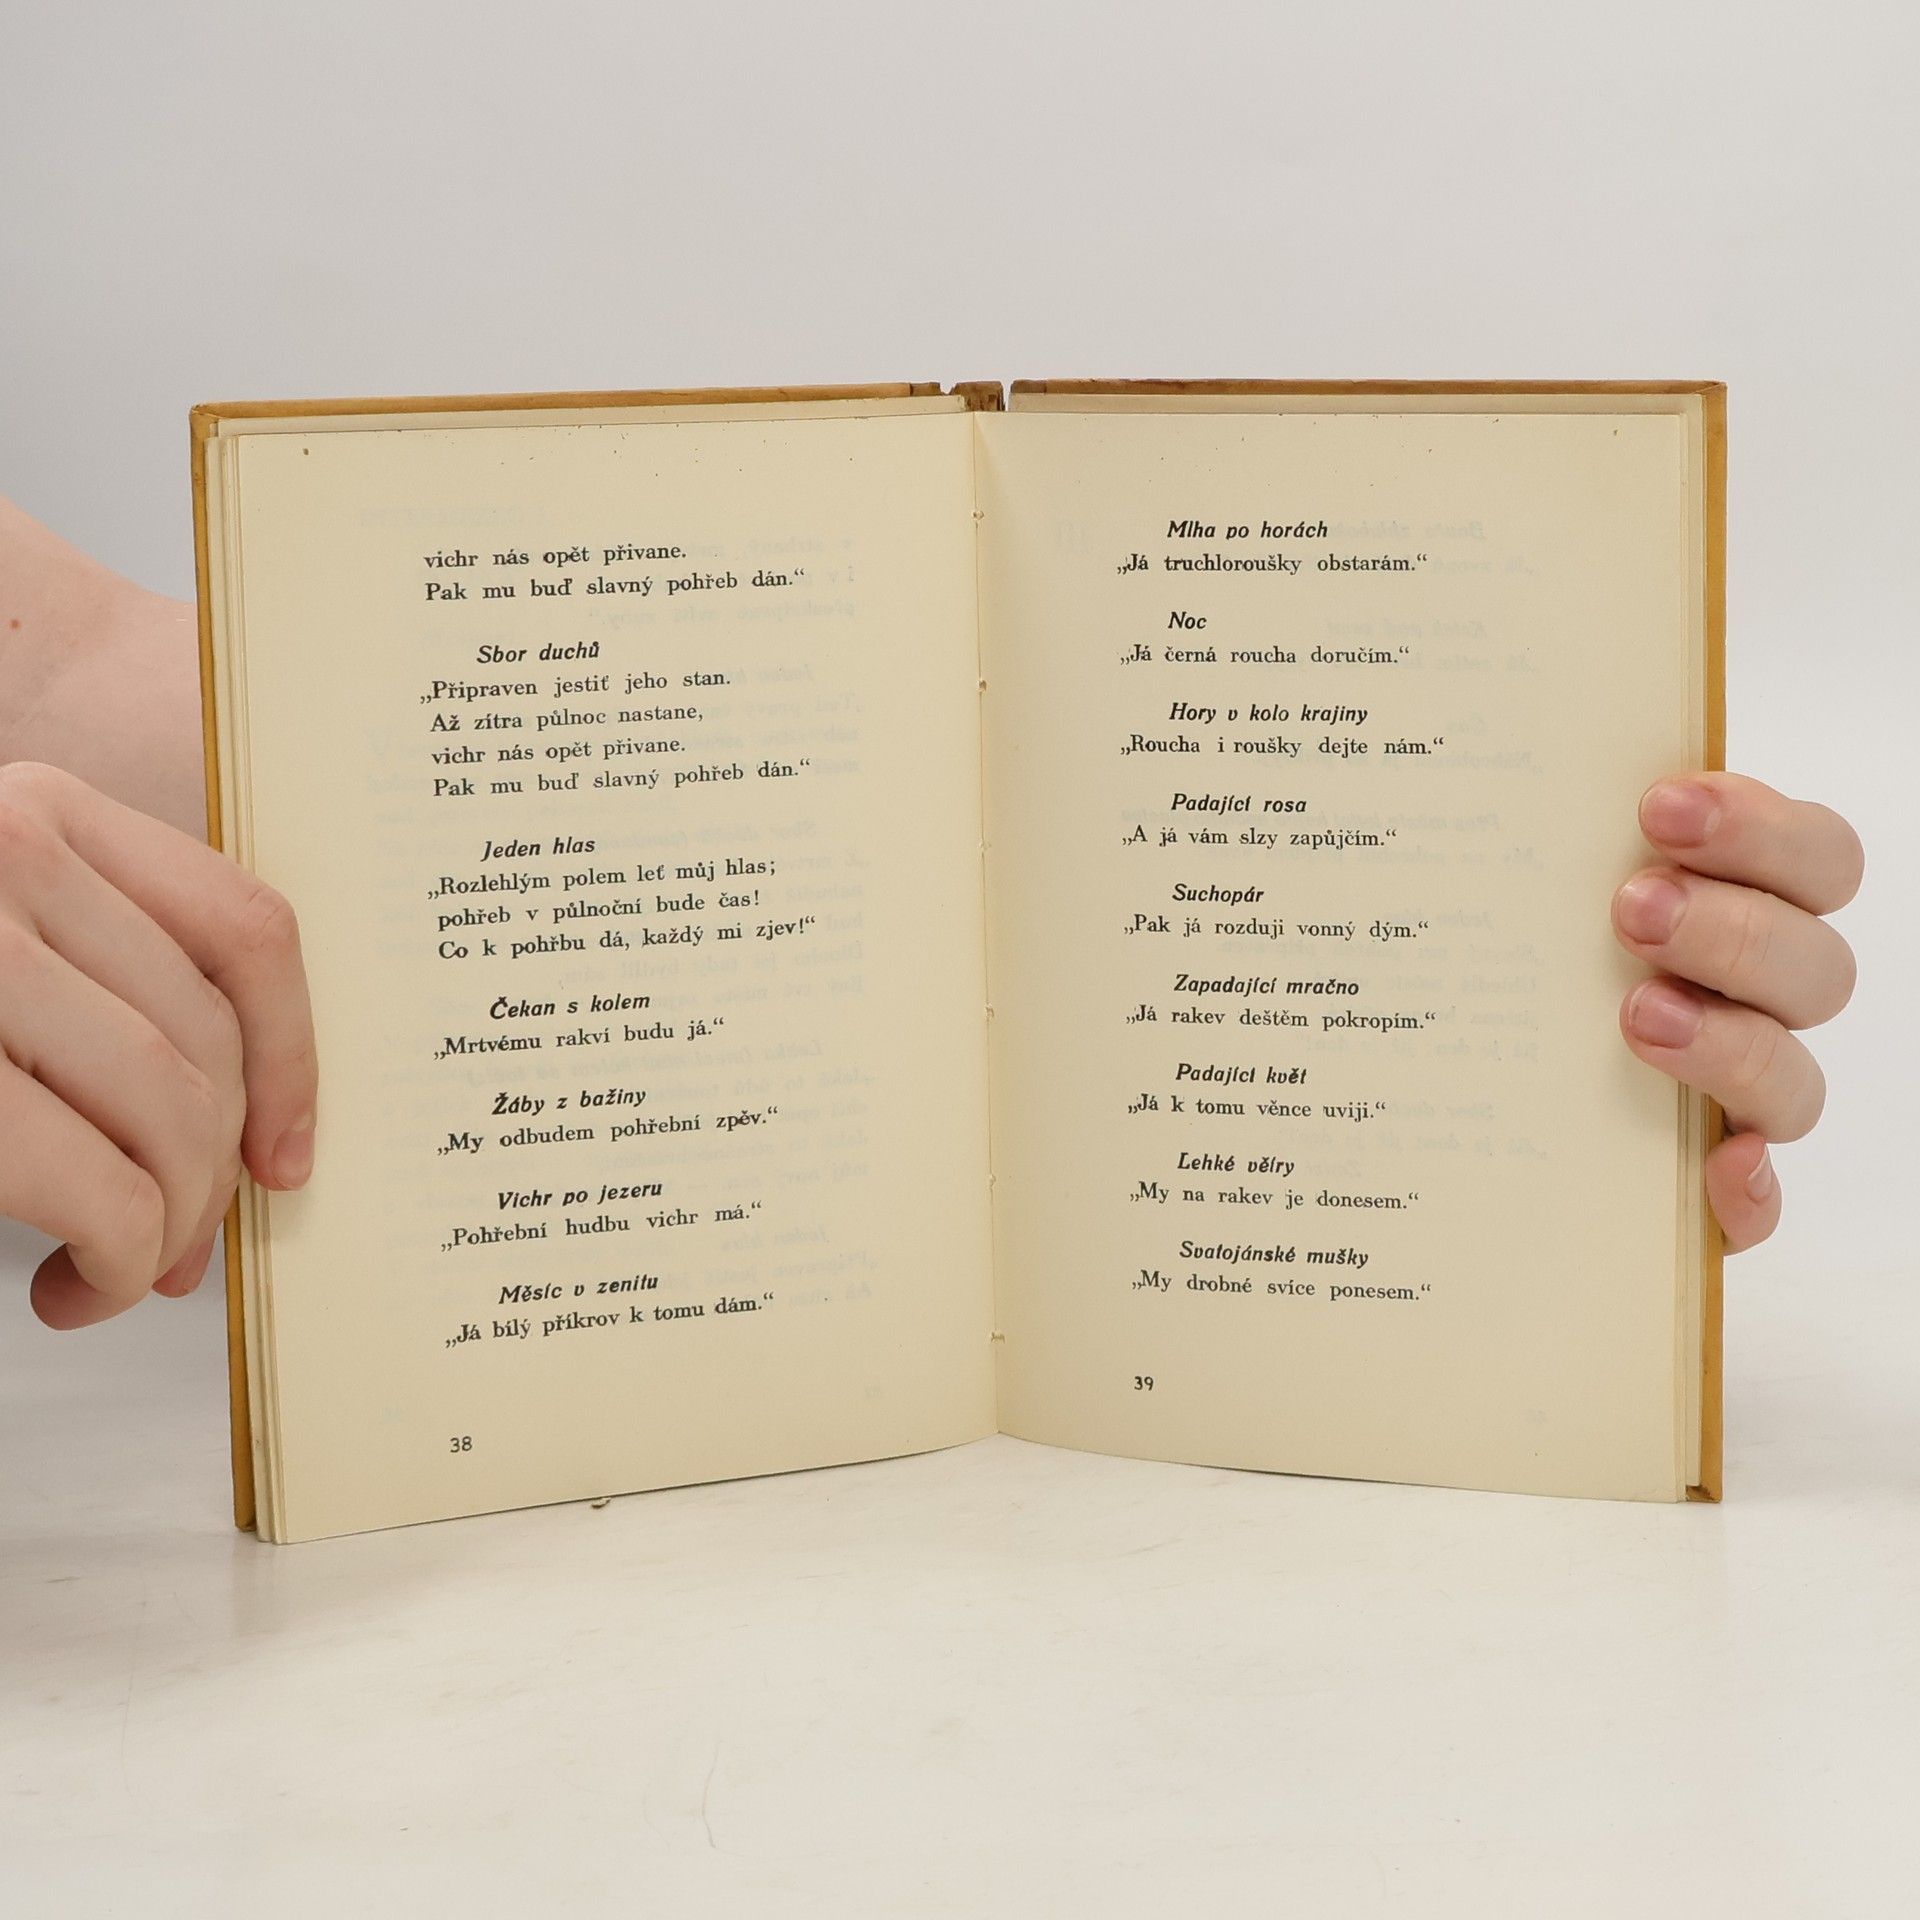 vichr nás opět přivane.
Pak mu buď slavný pohřeb dán.“
Sbor duchů
„Připraven jestiť jeho stan.
Až zítra půlnoc nastane,
vichr nás opět přivane.
Pak mu buď slavný pohřeb dán.“
Jeden hlas
„Rozlehlým polem leť můj hlas;
pohřeb v půlnoční bude čas!
Co k pohřbu dá, každý mi zjev!“
Čekan s kolem
„Mrtvému rakví budu já.“
Žáby z bažiny
„My odbudem pohřební zpěv.“
Vichr po jezeru
„Pohřební hudbu vichr má.“
Měsíc v zenitu
„Já bílý příkrov k tomu dám.“
38
Mlha po horách
„Já truchloroušky obstarám.“
Noc
„Já černá roucha doručím.“
Hory v kolo krajiny
„Roucha i roušky dejte nám.“
Padající rosa
„A já vám slzy zapůjčím.“
Suchopár
„Pak já rozduji vonný dým.“
Zapadající mračno
„Já rakev deštěm pokropím.“
Padající květ
„Já k tomu věnce uviji.“
Lehké větry
„My na rakev je donesem.“
Svatojánské mušky
„My drobné svíce ponesem.“
39